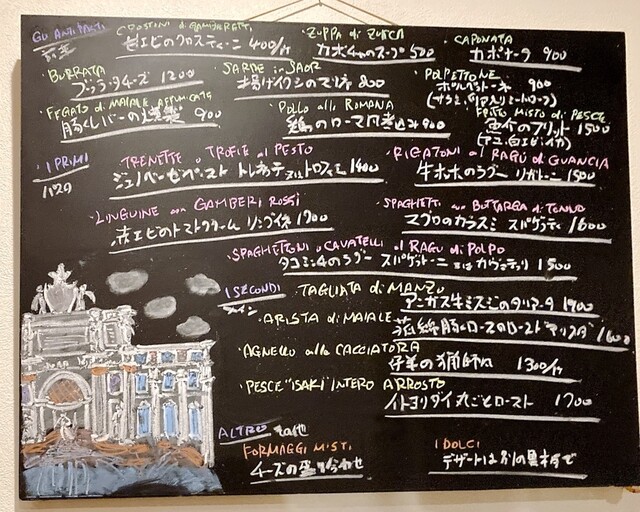 GLI ANTIPASTI
前菜
CROSTINI di GAMBERETTI
甘エビのクロスティーニ 400/ケ
ZUPPA di ZUCCA
カボチャのスープ 500
CAPONATA
カポナータ 900
・BURRATA
ブッラータチーズ 1200
・SARDE in SAOR
揚げイワシのマリネ 800
POLPETTONE
ポルペットーネ 900
・FEGATO di MAIALE AFFUMICATO
豚レバーの燻製 900
・POLLO alla ROMANA
鶏のローマ風煮込み 900
FRITTO MISTO di PESCE
魚介のフリット 1500
I PRIMI
パスタ
・TRENETTE o TROFIE al PESTO
ジェノベーゼペースト トレネッテ又はトロフィエ 1400
・RIGATONI al RAGÙ di GUANCIA
牛ホホのラグー リガトーニ 1500
・LINGUINE con GAMBERI ROSSI
赤エビのトマトクリーム リングイネ 1900
SPAGHETTI con BOTTARGA di TONNO
マグロのカラスミ スパゲッティ 1600
・SPAGHETTONI o CAVATELLI al RAGÙ di POLPO
タコのラグー スパゲットーニ 又は カヴァテッリ 1500
I SECONDI
メイン
・TAGLIATA di MANZO
アンガス牛ミスジのタリアータ 1900
・ARISTA di MAIALE
豚ロースのロースト"アリスタ" 1600
・AGNELLO alla CACCIATORA
仔羊の猟師風 1300/ケ
・PESCE "ISAKI" INTERO ARROSTO
イトヨリダイ丸ごとロースト 1700
ALTRO その他
FORMAGGI MISTI
チーズの盛り合わせ
I DOLCI
デザートは別の黒板で